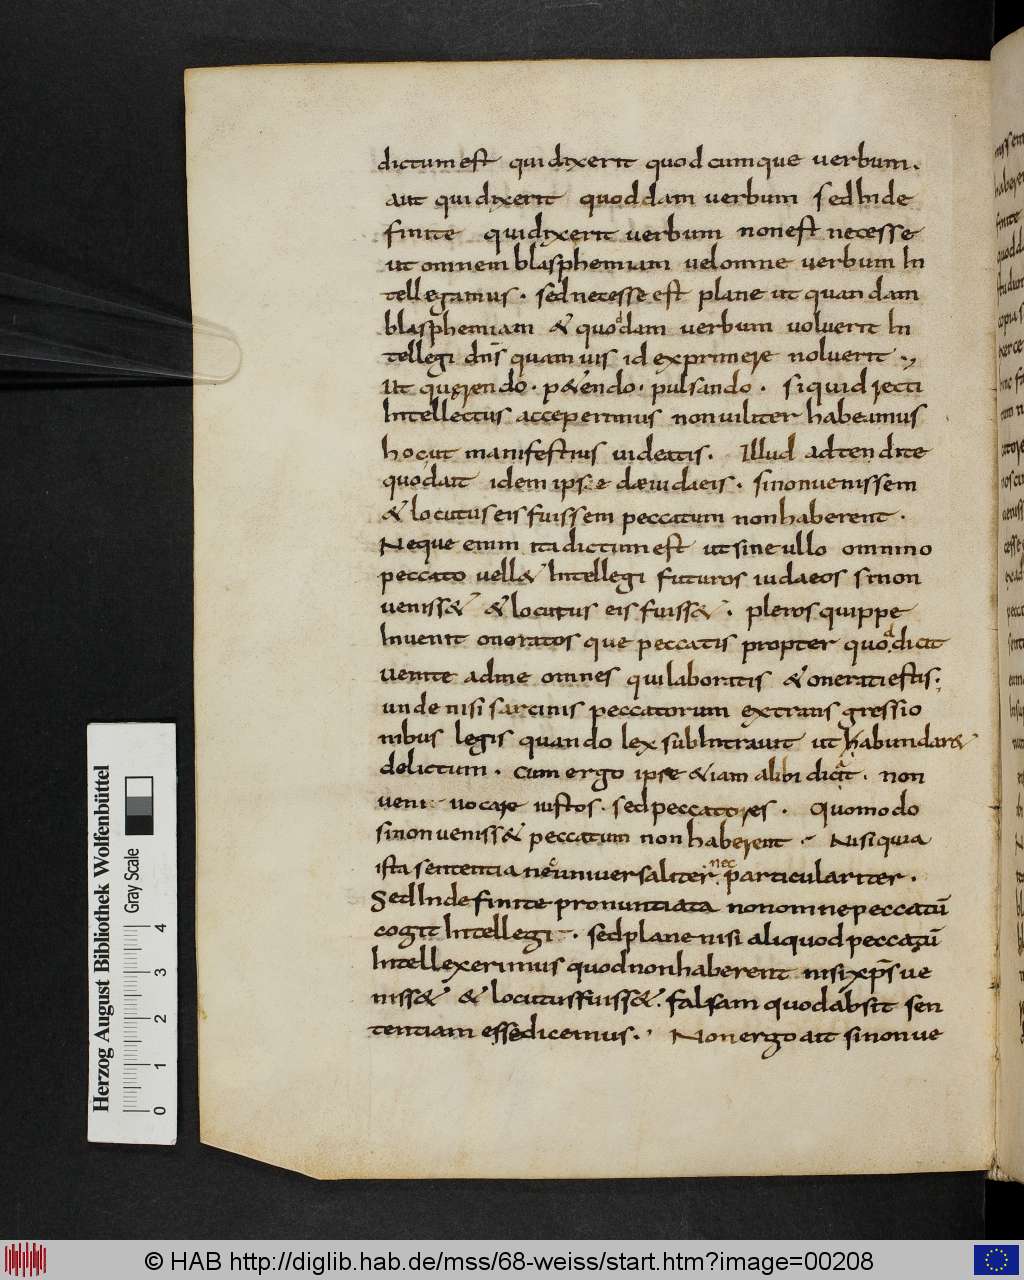 dictum est qui dixerit quodcumque verbum.
aut qui dixerit quoddam verbum sed inde
finite qui dixerit verbum non est necesse
ut omnem blasphemiam vel omne verbum in
tellegamus. sed necesse est plane ut quandam
blasphemiam & quoddam verbum voluerit in
tellegi dn̄s quamvis id exprimere noluerit.,
Ut quęrendo. p&endo. pulsando. si quid recti
intellectus acceperimus non viliter habeamus
hoc ut manifestius videatis. Illud adtendite
quod ait idem ipse de iudaeis. si non venissem
& locutus eis fuissem peccatum non haberent.
Neque enim ita dictum est ut sine ullo omnino
peccato vell& intellegi futuros iudaeos si non
veniss& & locutus eis fuiss&. pleros quippe
invenit oneratosque peccatis propter quod dicit
venite ad me omnes qui laboratis & onerati estis;
unde nisi sarcinis peccatorum extransgressio
nibus legis quando lex subintravit ut habundar&
delictum. cum ergo ipse &iam alibi dicat. non
veni vocare iustos. sed peccatores. Quomodo
si non veniss& peccatum non haberent. Nisi quia
ista sententia nec universaliter nec particulariter.
Sed indefinite pronuntiata non omne peccatū
cogit intellegi. sed plane nisi aliquod peccatū
intellexerimus quod non haberent nisi xp̄s ve
niss& & locutus fuiss&. falsam quod absit sen
tentiam esse dicemus. Non ergo ait si non ve
Herzog August Bibliothek Wolfenbüttel
Gray Scale
0 1 2 3 4
© HAB http://diglib.hab.de/mss/68-weiss/start.htm?image=00208